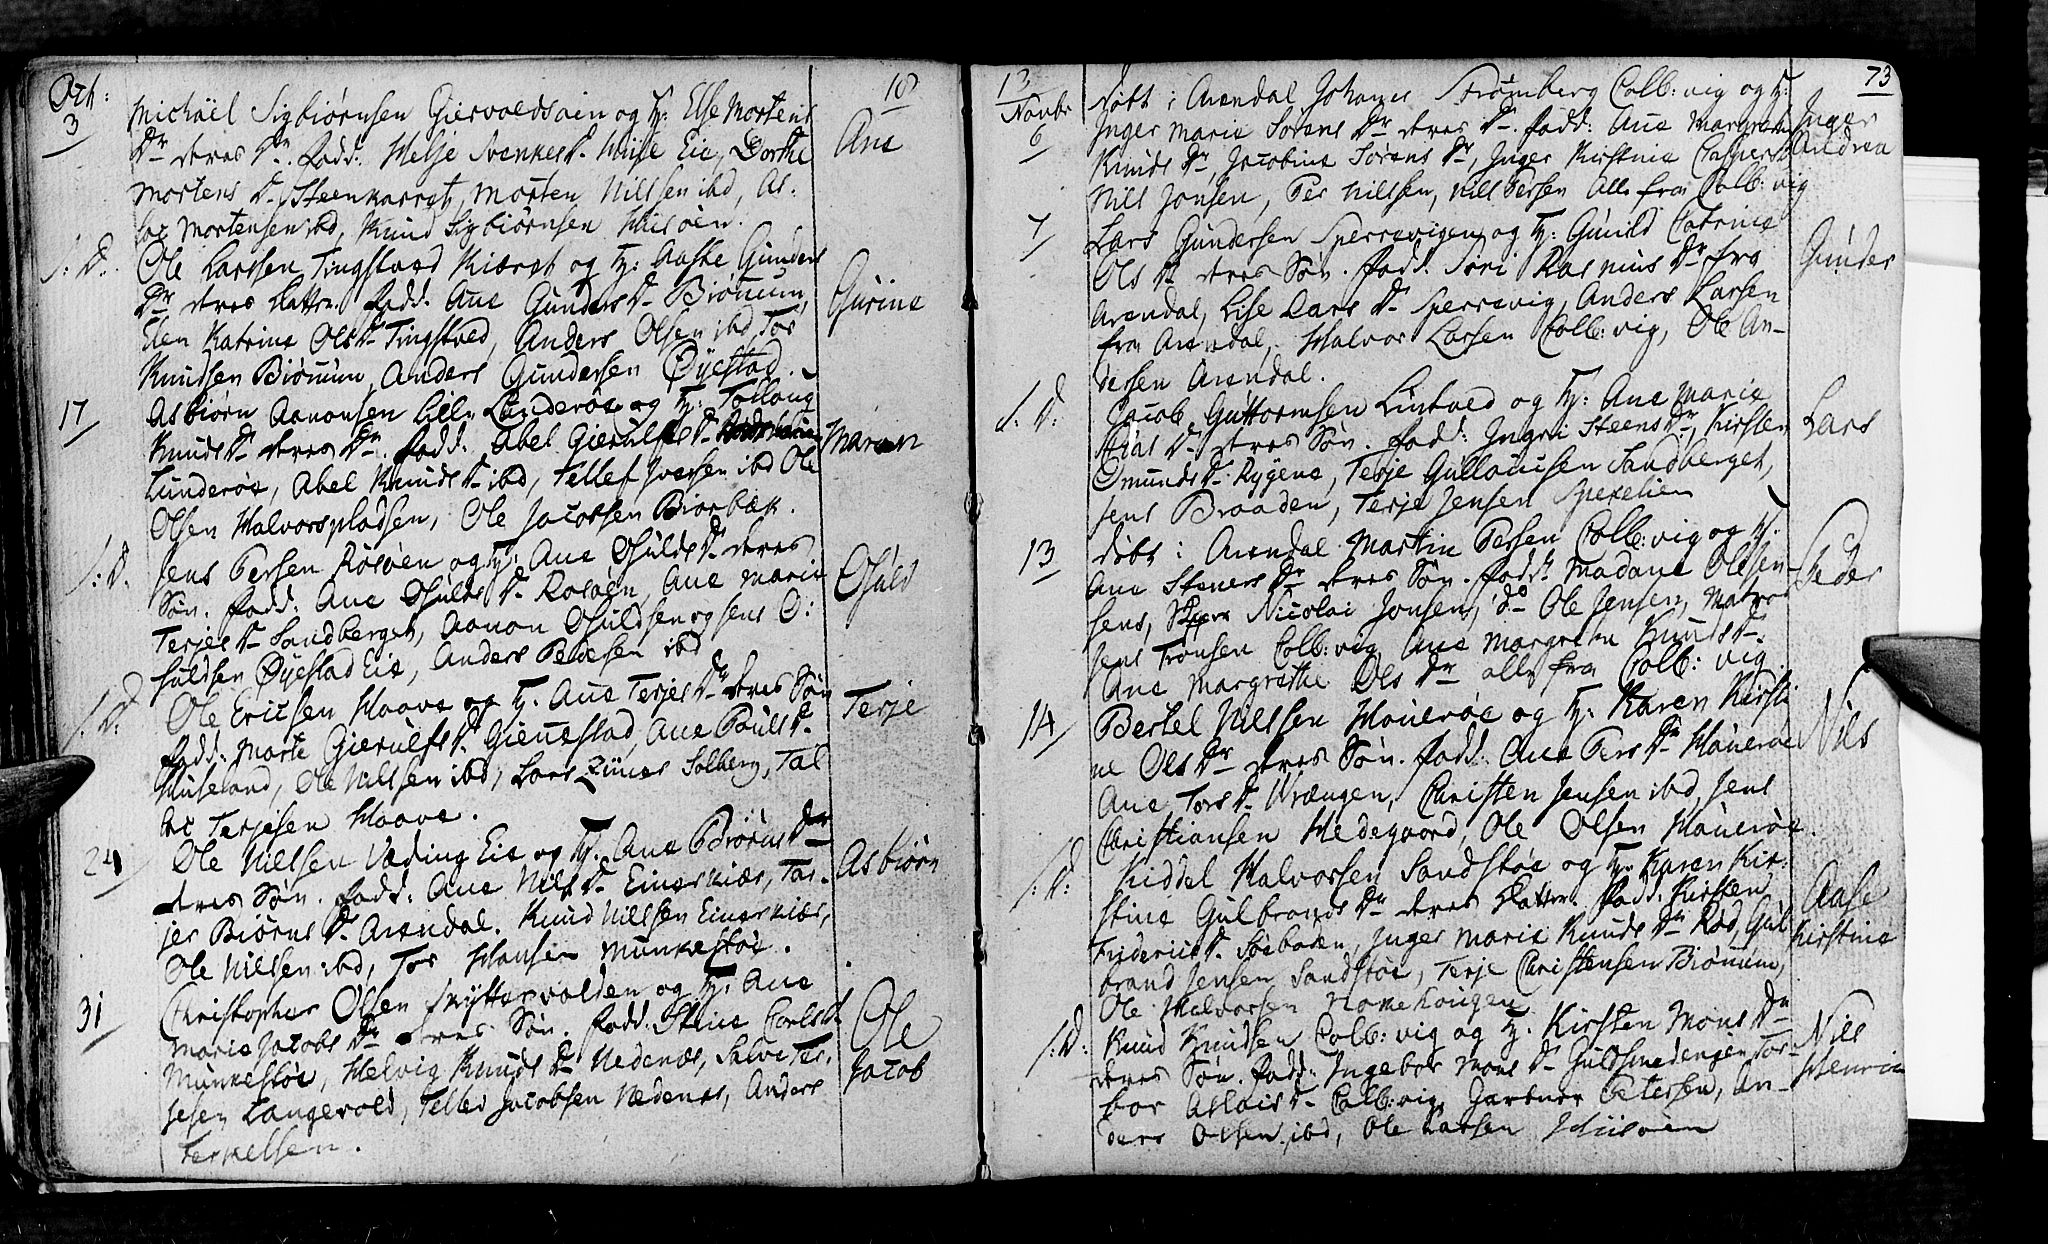 Octb:
18
3
Michäel Sigbiörnsen Giervoldsøien og H: Else Mortens
Dr deres Dr. fadd: Helje Svenkes D. Huse Eie, Dorthe
Ane
Mortens D. Steenkarret, Morten Nilssen ibd, As:
lac Mortensen ibd, Knud Sigbiörnsen Hiisöen.
S: D:
Ole Larssen Tingstved Kiærret og H: Aaste Gunders
Dr deres Datter. fadd: Ane Gunders D. Biönum,
Gurine
Elen Katrine Ols D. Tingstved, Anders Olsen ibd, Tor
Knudsen Biönum, Anders Gundersen Øyestad.
17
Asbiörn Aanonsen Lille Lunderöe og H: Tollaug
Knuds D. deres Dr. fadd: Abel Gierulfs D.
Maren
Lunderöe, Abel Knuds D. ibd, Tellef Iversen ibd, Ole
Olsen Halvorspladsen, Ole Jacobsen Biorbæk.
S: D.
Jens Persen Rosöen og H: Ane Osulds D. deres
Søn. fadd: Ane Osulds D. Rosöen, Ane Marie
Osuld
Terjes D. Sandberget, Aanon Osuldsen og Jens O:
suldsen Øyestad Eie, Anders Pedersen ibd
S: D:
Ole Ericsen Haave og H: Ane Terjes Dr deres Søn
Terje
fadd: Marte Gierulfs D. Gienestad, Ane Pouls D.
Huseland, Ole Nilssen ibd, Lars Solberg, Tal
lac Terjesen Haave.
24
Ole Nilssen Væding Eie og H: Ane Biörns Dr
Asbiörn
deres Søn. fadd: Ane Nils D. Einerkiær, Tar-
jer Biörns D. Arendal. Knud Nilssen Einerkiær,
Ole Nilssen ibd, Tor Hansen Munkestöe.
31
Christopher Olsen Skyttervolden og H: Ane
Ole
Marie Jacobs Dr deres Søn. fadd: Stine Carls D.
Munkestöe, Helvig Knuds D. Nedenæs, Salve Ter,
Jacob
jesen Langevold, Tellev Jacobsen Nedenes, Anders
Terkelsen.
13
73
Novbr
6
döbt i Arendal Johanes Strömberg Colb:vig og H:
Inger Marie Sørens Dr deres D. fadd: Ane Margrethe
Inger
Knuds Dr, Jacobine Sørens Dr, Inger Kirstine Caspers D
Andrea
Nils Jonsen, Per Nilssen, Nils Persen alle fra Colb:vig
7
Lars Gundersen Sperrevigen og H: Gunild Catrine
Ols D. deres Søn. fadd: Siri Rasmus Dr fra
Gunder
Arendal, Lise Lars D. Sperrevig, Anders Larsen
fra Arendal, Halvor Larsen Colb:vig, Ole An-
dersen Arendal.
S: D:
Jacob Guttormsen Lintved og H: Ane Marie
D. deres Søn. fadd: Ingri Steens Dr, Kirsten
Lars
Omunds D. Rygene, Terje Gullousen Sandberget,
Jens Braaden, Terje Jensen Spekelien
13
döbt i Arendal. Martin Persen Colb:vig og H:
Ane Steners Dr deres Søn. fadd: Madane Olesen-
Peder
sens, Skiper Nicolai Jonsen, do Ole Jensen, Matros
Jens Trönsen Colb:vig, Ane Margrethe Knuds D.
Ane Margrethe Ols Dr alle fra Colb: vig
14
Bertel Nilssen Haueröe og H: Karen Kirsti
Nils
ne Ols Dr deres Søn. fadd: Ane Pers Dr Haueröe
Ane Tors D. Vrængen, Christen Jensen ibd, Jens
Christiansen Hedegaard, Ole Olsen Haueröe.
S: D:
Kiddel Halvorsen Sandstöe og H: Karen Kir-
stine Gulbrands Dr deres Datter. fadd: Kirsten
Aase
Friderics D. Søeboden, Inger Marie Knuds Dr Rød, Gul
Kirstine
brand Jensen Sandstöe, Terje Christensen Biönum,
Ole Halvorsen
S: D:
Knud Knudsen Colb:vig og H: Kirsten Mons Dr
Nils
deres Søn. fadd: Ingebor Mons D. Guldsmedengen, Tor-
Henric
bor Aslacs D. Colb:vig, Gartner Petersen, An-
ders Olsen ibd, Ole Larsen Hiisöen